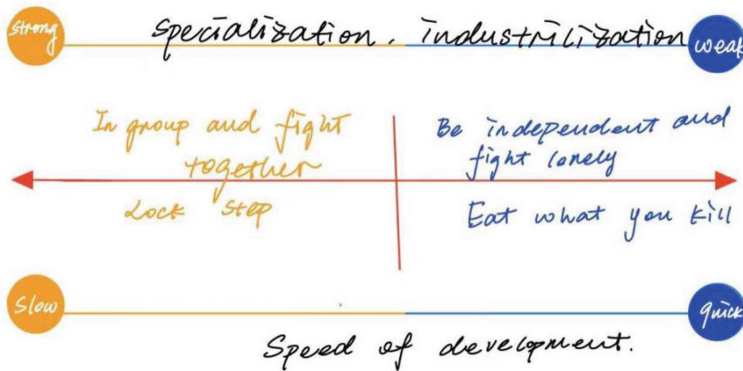 strong specialization. industrilization weak
In group and fight
together
Be independent and
fight lonely
Lock Step
Eat what you kill
slow quick
Speed of development.